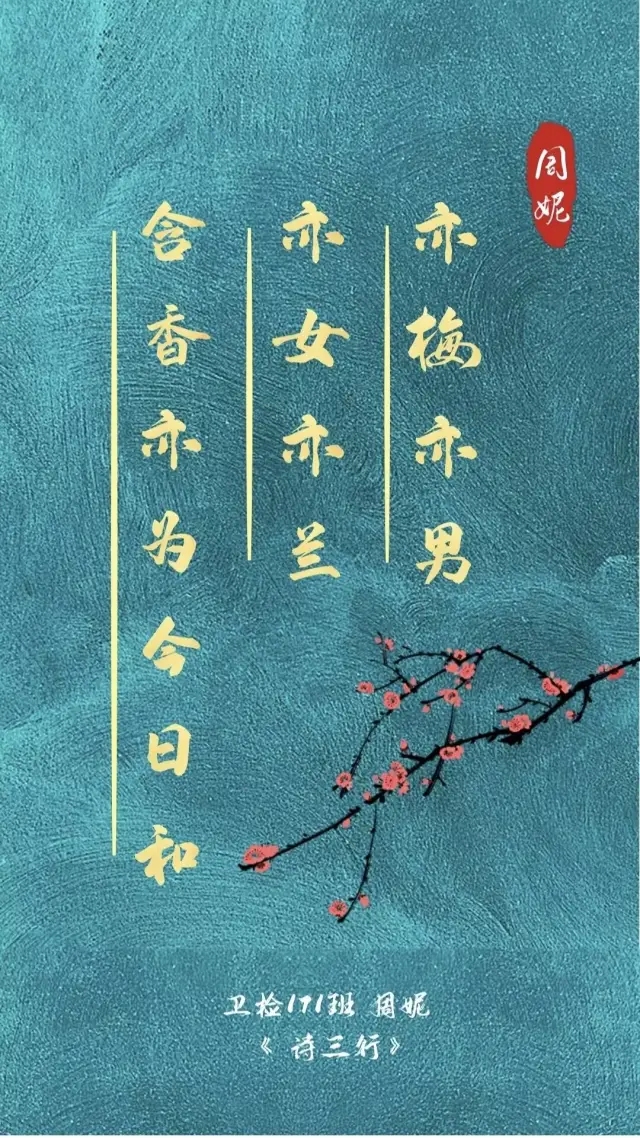 周妮
亦梅亦男
亦女亦兰
含香亦为今日和
卫检171班 周妮
《 诗三行》